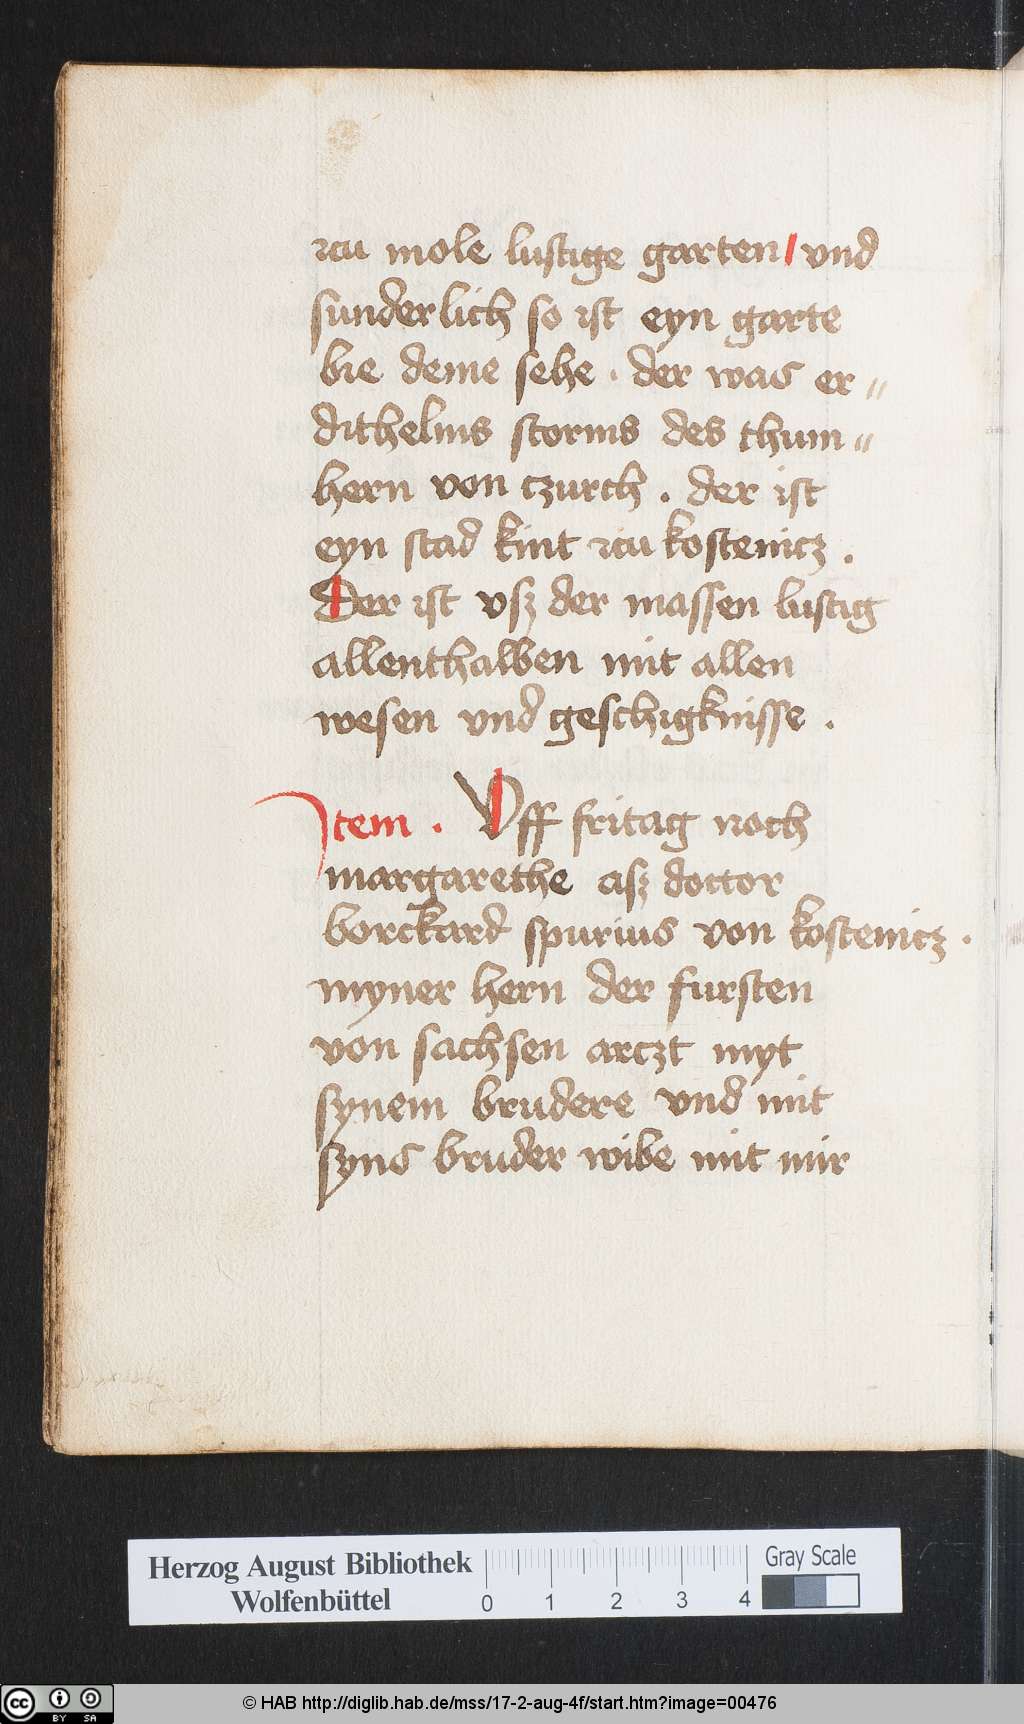 zcu mole lustige garten / und
sunderlich so ist eyn garte
bie deme sehe . der was er〃
dithelms storms des thum〃
hern von czurch . der ist
eyn stad kint zcu kostenicz .
Der ist vsz der massen lustig
allenthalben mit allen
wesen vnd geschigknisse .
Item . Vff fritag noch
margarethe asz doctor
borckard spurius von kostenicz .
myner hern der fursten
von sachsen arczt myt
synem brudere vnd mit
syns bruder wibe mit mir
Herzog August Bibliothek
Wolfenbüttel
0 1 2 3 4
Gray Scale
cc BY SA
© HAB http://diglib.hab.de/mss/17-2-aug-4f/start.htm?image=00476